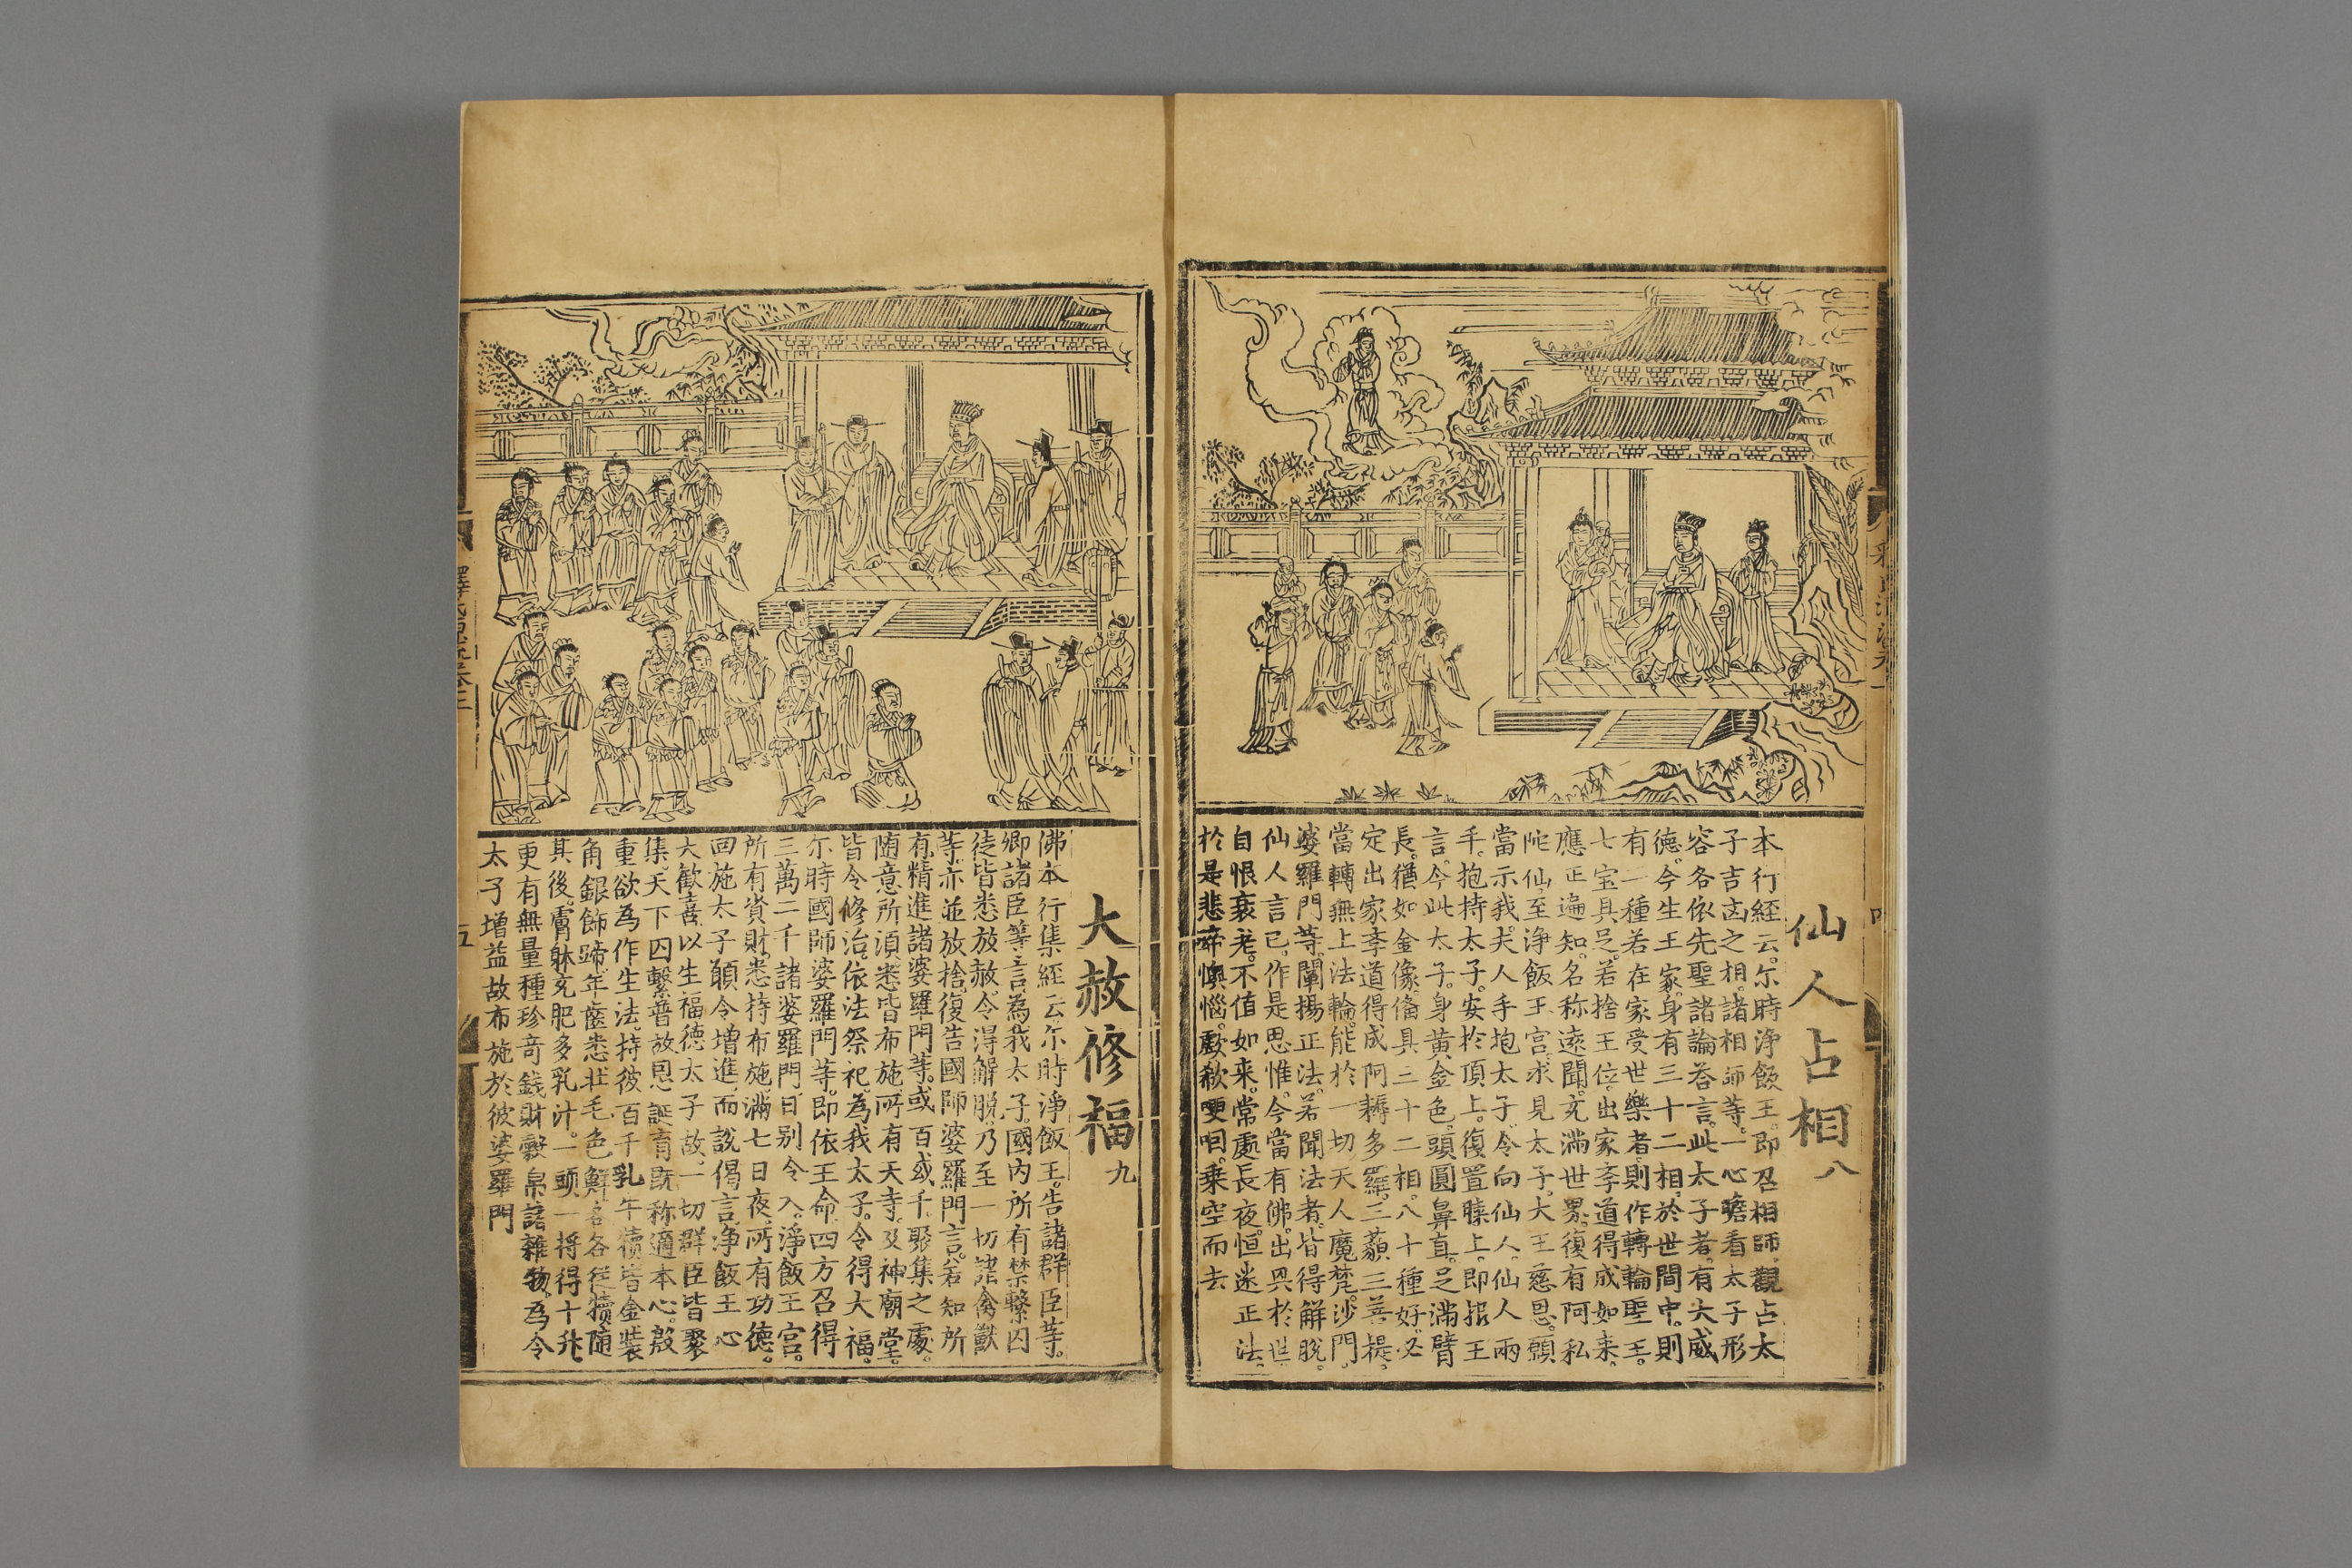 仙人占相八
本行経云。尔時淨飯王。即召相師。觀占太
子吉凶之相。諸相師等。一心瞻看太子形
容各依先聖諸論荅言。此太子者。有大威
德。今生王家。身有三十二相。於世間中。則
有一種若在家受世樂者。則作轉輪聖王。
七宝具足。若捨王位。出家斈道得成如来。
應正遍知。名称遠聞。充滿世界。復有阿私
陁仙。至淨飯王宫。求見太子。大王慈恩。願
當示我。夫人手抱太子。令向仙人。仙人兩
手。抱持太子。安於頂上。復置膝上。即報王
言。今此太子。身黄金色。頭圓鼻直。足滿臂
長。猶如金像。俻具三十二相。八十種好。必
定出家斈道得成阿耨多羅。三藐三菩提。
當轉無上法輪。能於一切天人魔梵。沙門。
婆羅門等。闡揚正法。若聞法者。皆得解脫。
仙人言已。作是思惟。今當有佛。出興於世。
自恨衰老。不值如来。常處長夜。恒迷正法。
於是悲啼懊惱。歔欷哽咽。乗空而去
大赦修福九
佛本行集経云尔時淨飯王。告諸群臣等。
卿諸臣等言為我太子。國内所有禁繫囚
徒皆悉放赦。令得解脫。乃至一切諸禽獸
等。亦並放捨。復告國師婆羅門言。若知所
有。精進諸婆羅門等。或百或千。聚集之處。
随意所須。悉皆布施。所有天寺。及神廟堂。
皆令修治。依法祭祀。為我太子。令得大福。
尔時國師婆羅門等。即依王命。四方召得
三萬二千諸婆羅門。日别令入。淨飯王宫。
所有資財。悉持布施。滿七日夜。所有功德。
回施太子。願令增進。而說偈言。淨飯王心
大歡喜。以生福德太子故。一切群臣皆聚
集。天下囚繫普放恩。誕育既称適本心。殷
重欲為作生法。持彼百千乳牛犢皆金裝
角銀飾蹄。年齒悉壮毛色鮮各各從犢随
其後。膚躰充肥多乳汁。一頭一搆得十升。
更有無量種珍奇錢財糓帛諸雜物。為令
太子增益故布施於彼婆羅門